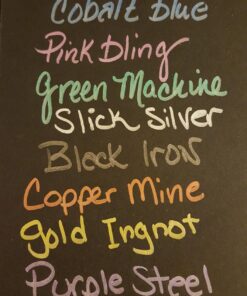 Cobalt Blue
Pink Bling
Green Machine
Slick Silver
Black Iron
Copper Mine
Gold Ingnot
Purple Steel